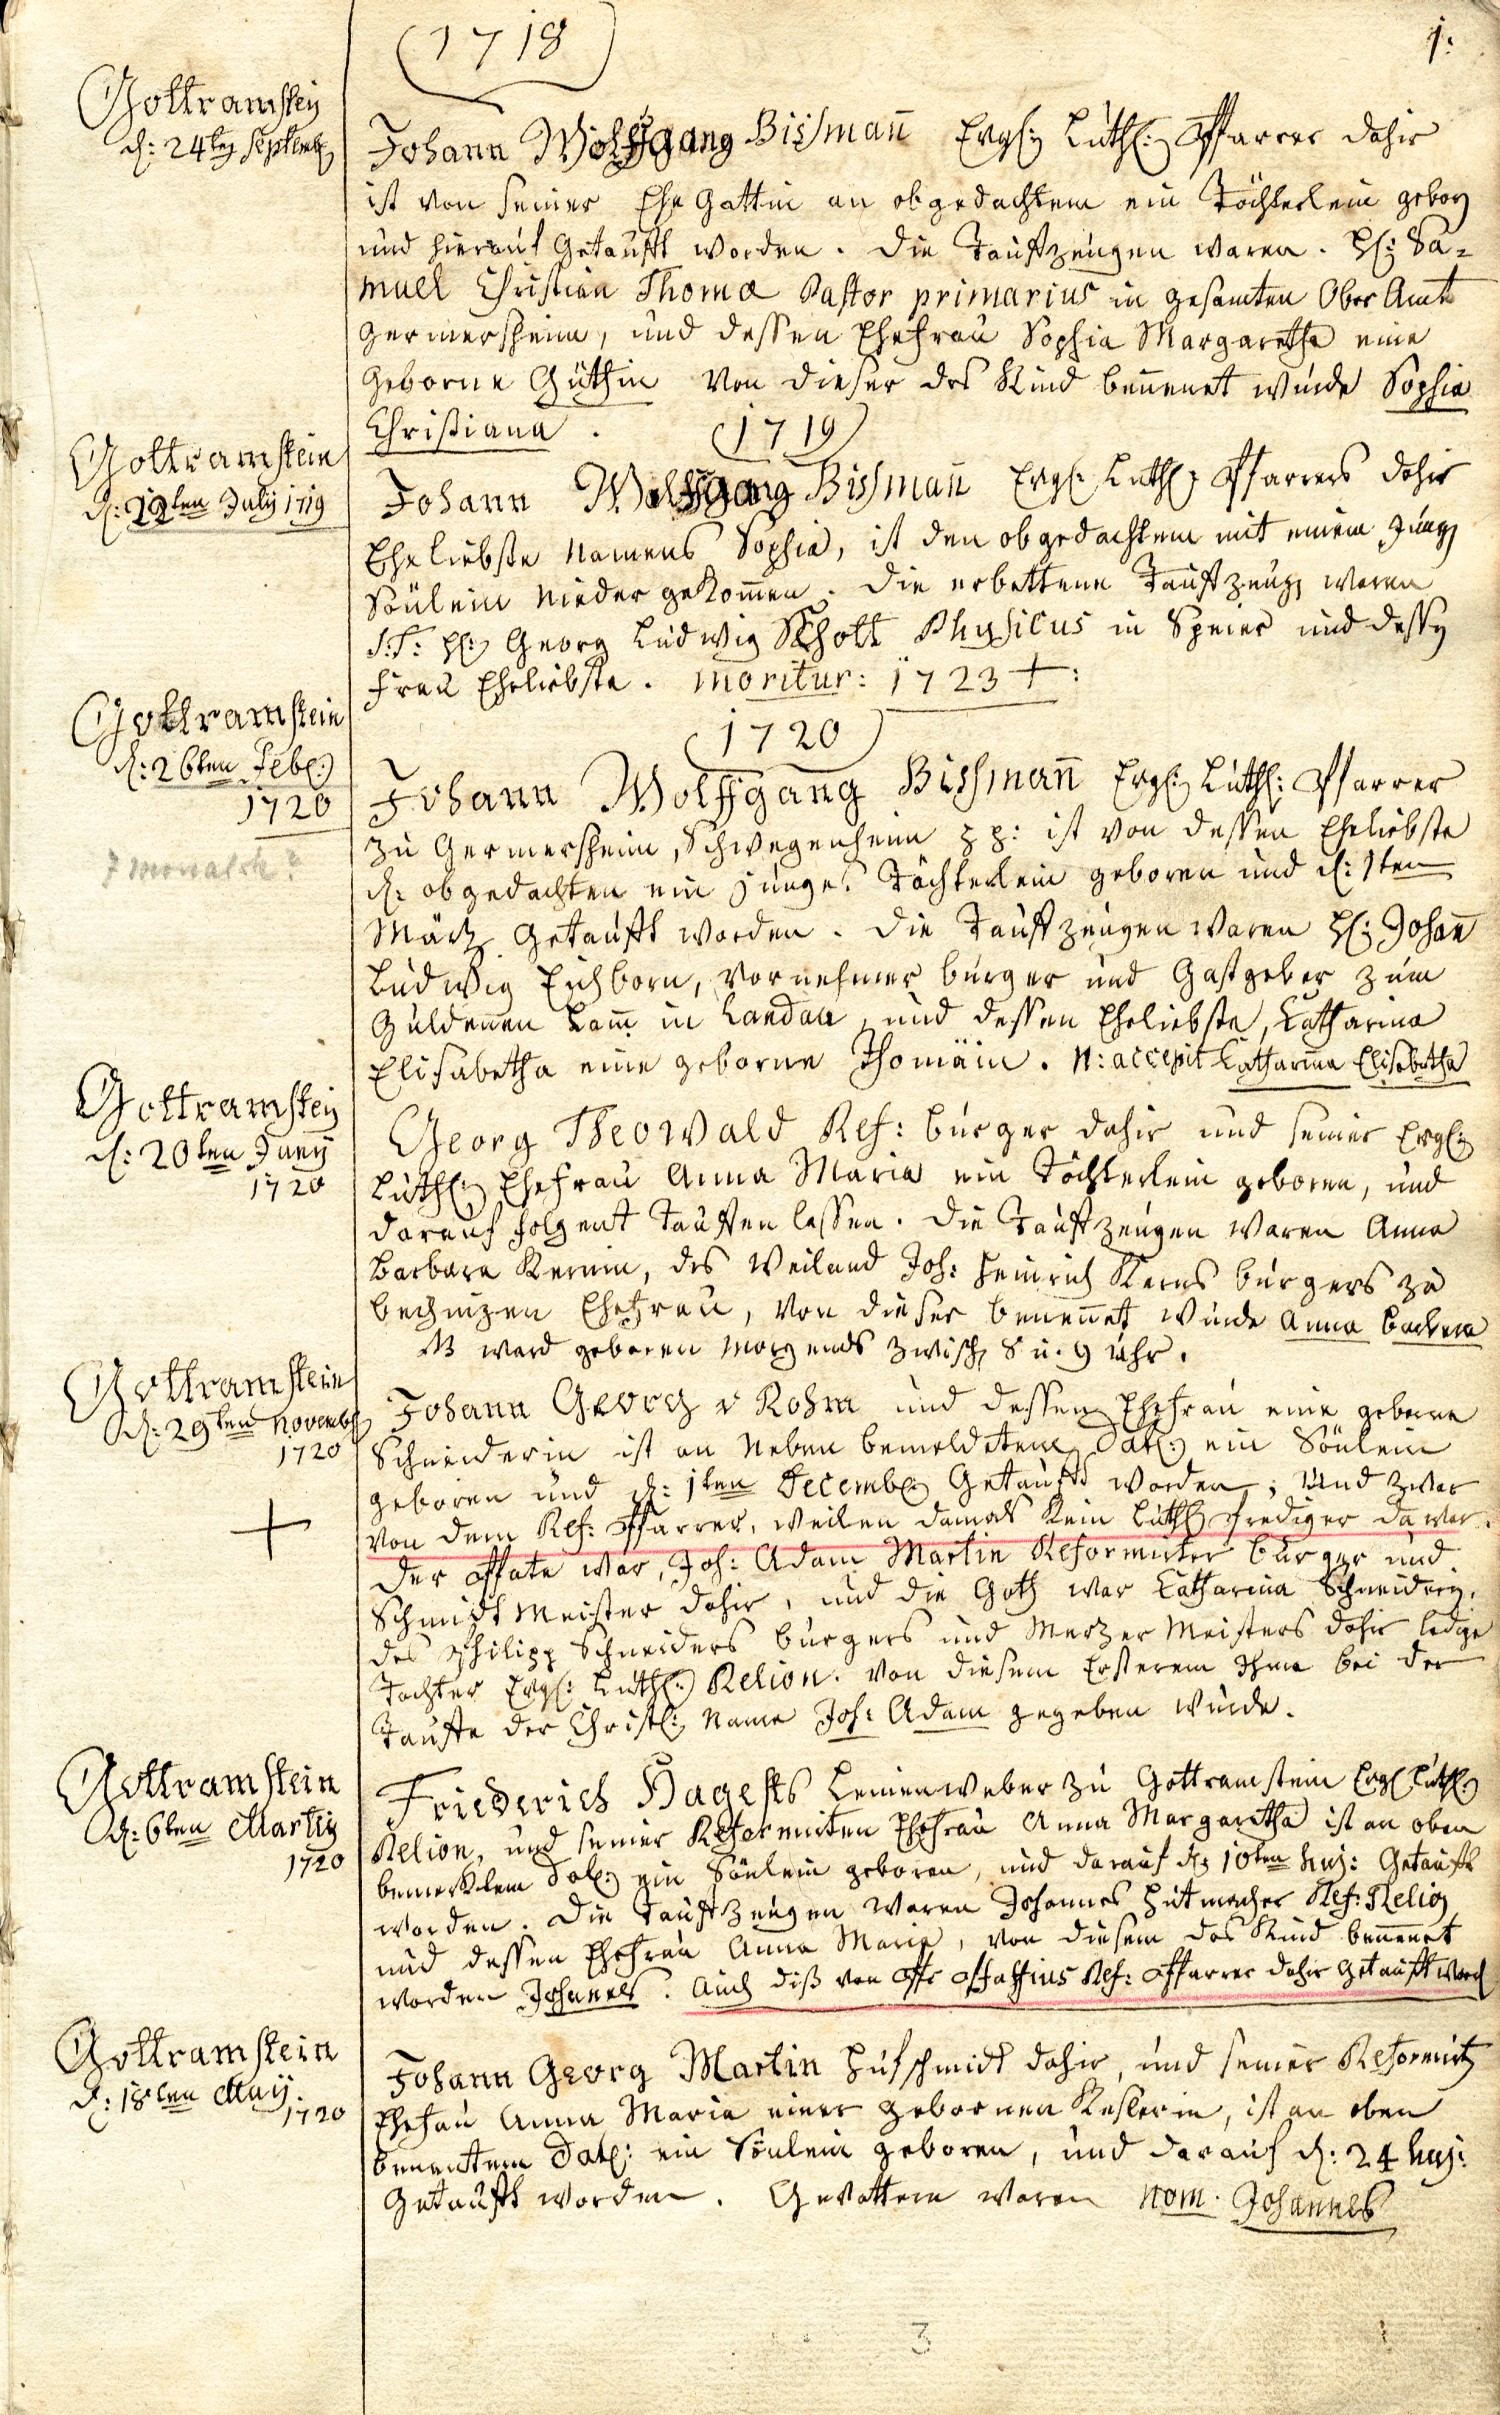 1718
1:
Gottramstein
d: 24ten Septemb:
Johann Wolffgang Bissmañ Evgl: Luth: Pfarrer dahir
ist von seiner Ehe Gattin an obgedachtem ein Töchterlein geborn
und hierauf Getaufft worden. Die Tauffzeugen waren. H: Sa=
muel Christian Thomæ Pastor primarius in gesamten Ober Amt
Germersheim, und dessen Ehefrau Sophia Margaretha eine
Geborne Güthin von dieser das Kind beñenet wurde Sophia
Christiana.
1719
Gottramstein
d: 12ten July 1719
Johann Wolffgang Bissmañ Evgl: Luth: Pfarrers dahir
Eheliebste Namens Sophia, ist den obgedachtem mit einem jungen
Sönlein Nieder gekom̃en. Die erbettene Tauffzeugen waren
S: T: H: Georg Ludwig Schott Physicus in Speier und dessen
Frau Eheliebste. moritur: 1723 +:
1720
Gottramstein
d: 26ten Feb:
1720
7 monatch?
Johann Wolffgang Bissmañ Evgl: Luth: Pfarrer
zu Germersheim, Schwegenheim pp: ist von dessen Eheliebste
d: obgedachten ein junges Töchterlein geboren und d: 1ten
Märtz Getaufft worden. Die Tauffzeugen waren H: Johañ
Ludwig Eichborn, vornehmer burger und Gastgeber zum
Guldenen Lam̃ in Landau, und dessen Eheliebste, Catharina
Elisabetha eine geborne Thomäin. N: accepit Catharina Elisabetha
Gottramstein
d: 20ten Juny
1720
Georg Theowald Ref: burger dahir und seiner Evgl:
Luth: Ehefrau Anna Maria ein Töchterlein geboren, und
darauf folgent Tauffen lassen. Die Tauffzeugen waren Anna
Barbara Kernin, des weiland Joh: Heinrich Kerns burgers zu
Ehefrau, von dieser beneñet wurde Anna Barbara
NB ward geboren morgends zwisch 8 u. 9 uhr.
Gottramstein
d: 29ten Novemb:
1720
+
Johann Georg Rohm und dessen Ehefrau eine geborne
Schneiderin ist an Neben bemeldetem Dat: ein Sönlein
geboren und d: 1ten Decemb: Getaufft worden; und zwar
von dem Ref: Pfarrer, weilen damals Kein Luth: Prediger da war.
Der Pfate war, Joh: Adam Martin Reformirter burger und
Schmidt Meister dahir, und die Goth war Catharina Schneiderin,
des Philipp Schneiders burgers und Metzer Meisters dahir ledige
Tochter Evgl: Luth: Relion. von diesem Ersterem Ihme bei der
Tauffe der Christl: Name Joh: Adam gegeben wurde.
Gottramstein
d: 6ten Martij
1720
Friederich Hagests Leinenweber zu Gottramstein Evgl Luth:
Relion, und seiner Reformirten Ehefrau Anna Margaretha ist an oben
bemerktem Dat: ein Sönlein geboren, und darauf d: 10ten huj: Getaufft
worden. Die Tauffzeugen waren Johannes Hutmacher Ref: Relig
und dessen Ehefrau Anna Maria, von diesem das Kind beñenet
worden Johannes. Auch diß von Ref: Pfarrer dahir getaufft word
Gottramstein
d: 18ten May.
1720
Johann Georg Martin Hufschmidt dahir, und seiner Reformirten
Ehefau Anna Maria einer gebornen Keslerin, ist an oben
benenttem Dat: ein Sönlein geboren, und darauf d: 24 huj:
Getaufft worden. Gevattern waren nom. Johannes
3